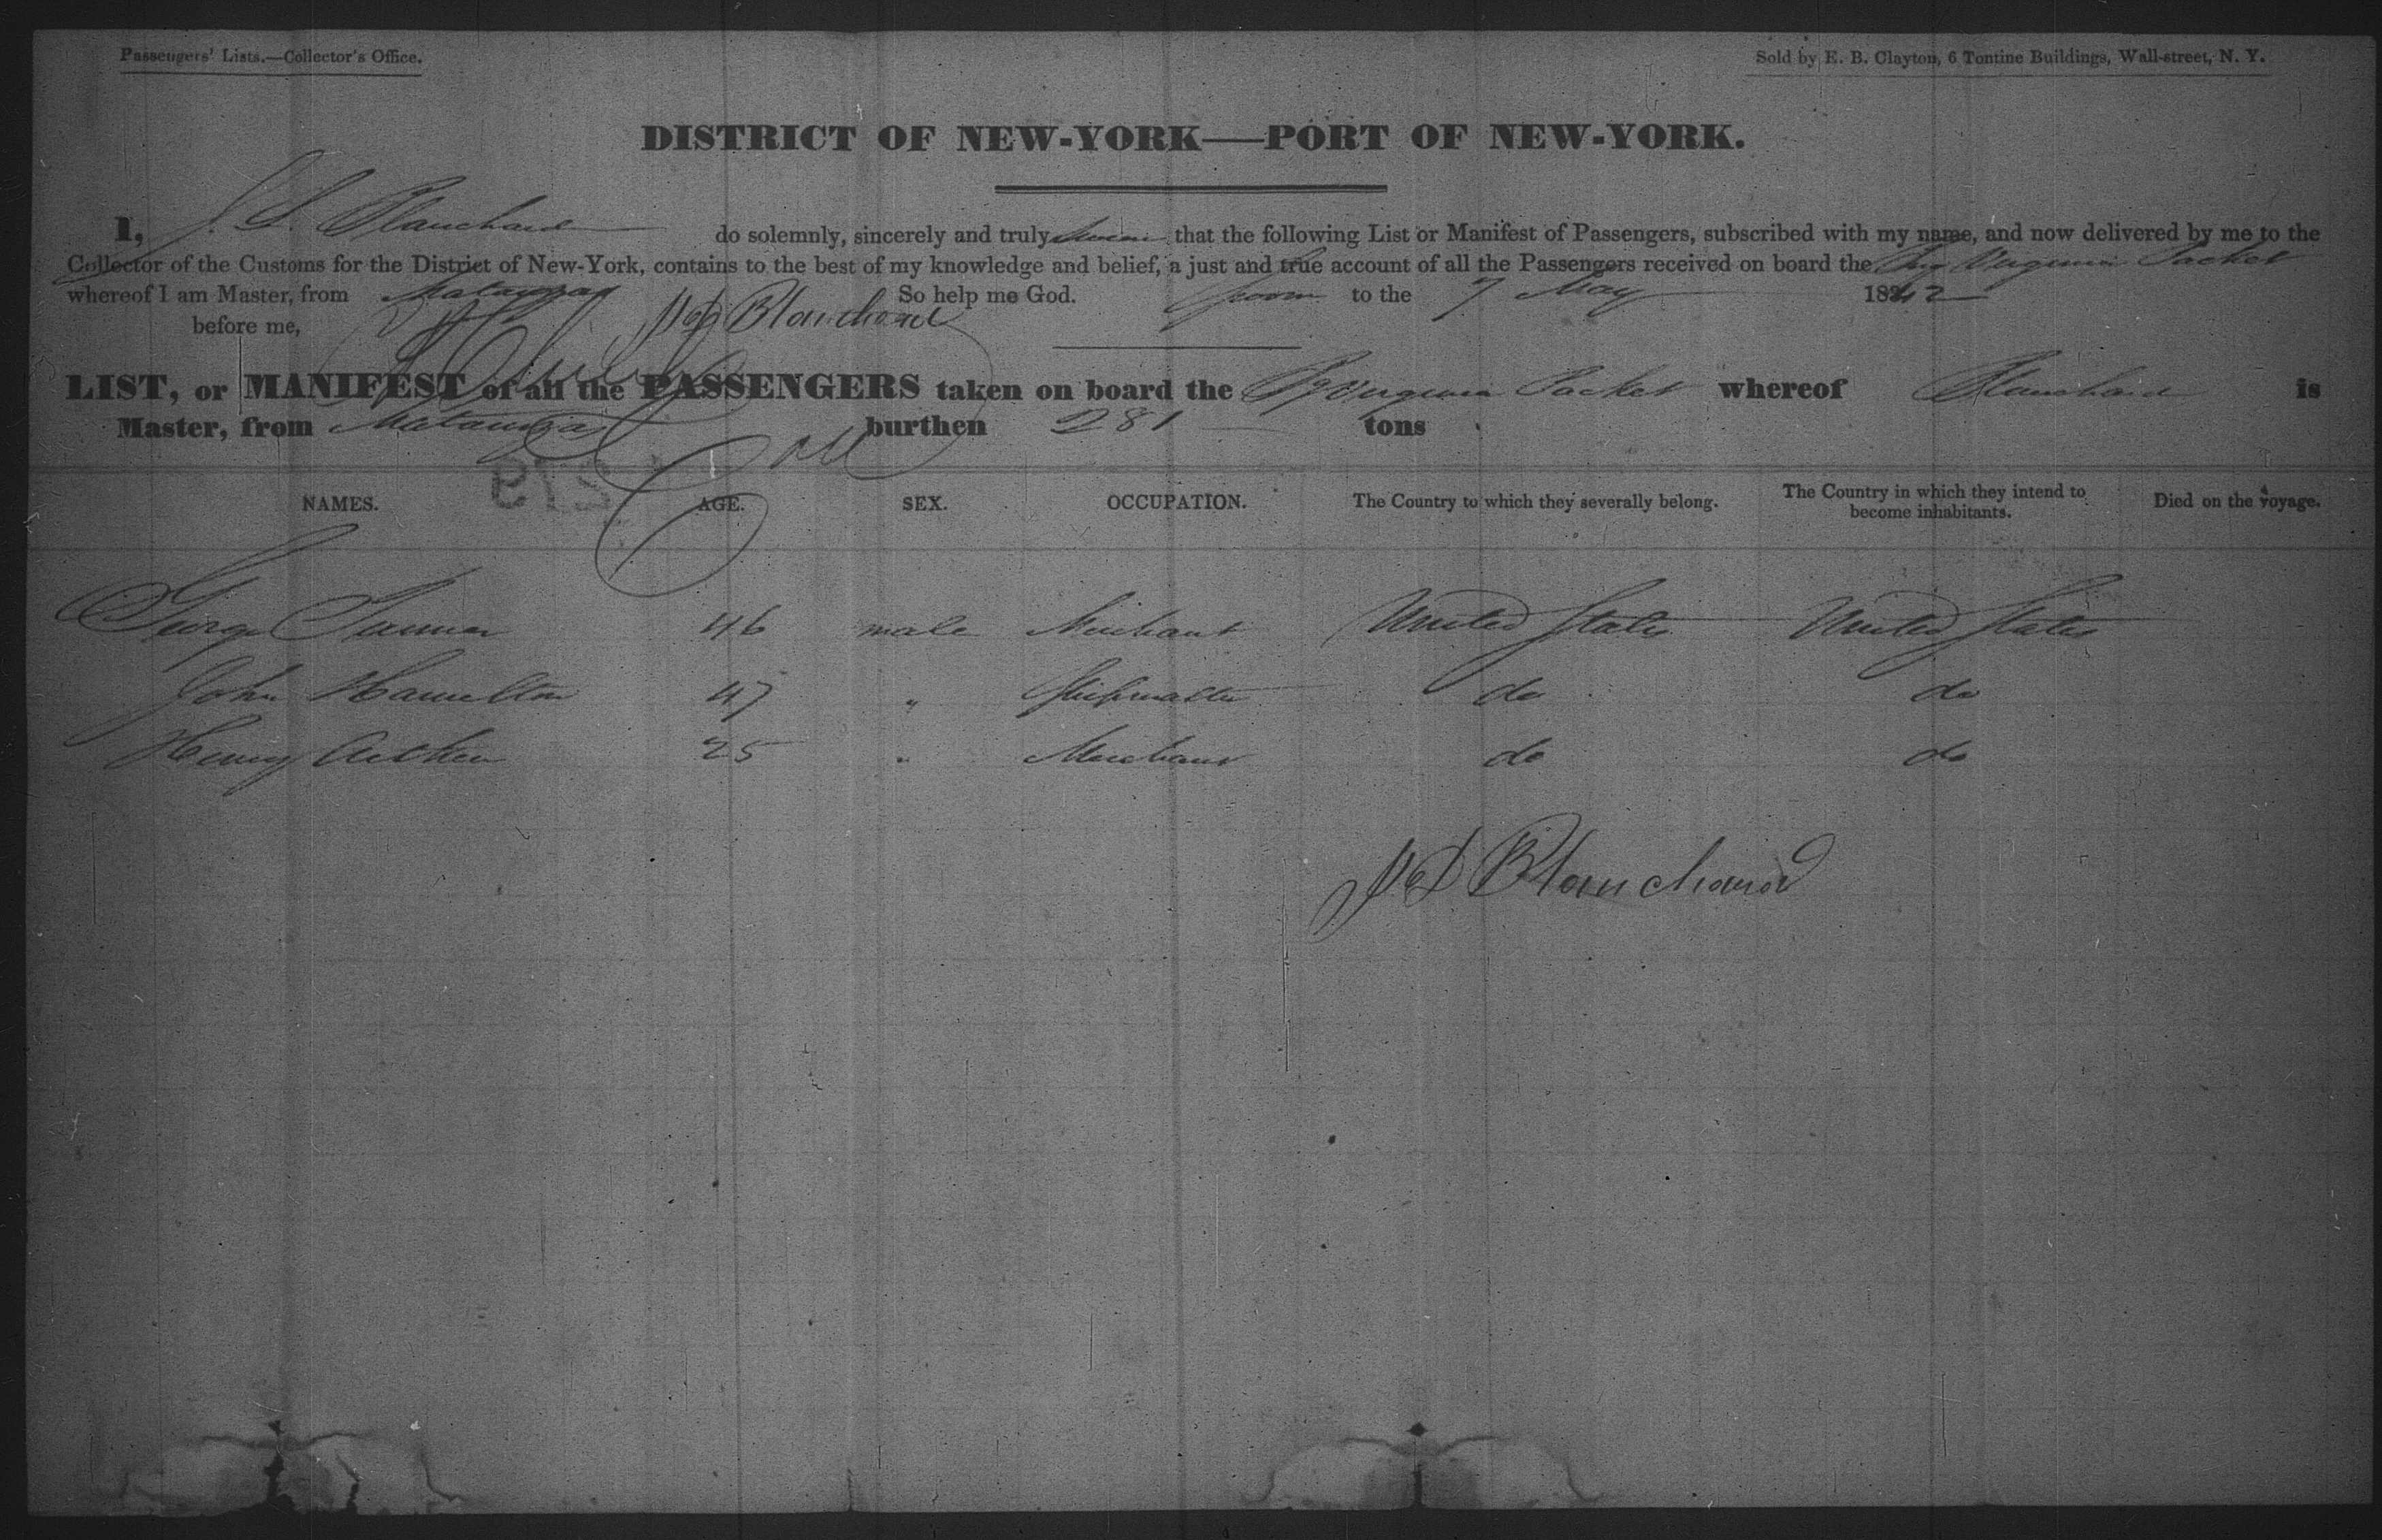 Passengers' Lists.—Collector's Office.
Sold by E. B. Clayton, 6 Tontine Buildings, Wall-street, N. Y.
DISTRICT OF NEW-YORK—PORT OF NEW-YORK.
I, Blanchard do solemnly, sincerely and truly swear that the following List or Manifest of Passengers, subscribed with my name, and now delivered by me to the
Collector of the Customs for the District of New-York, contains to the best of my knowledge and belief, a just and true account of all the Passengers received on board the Brig Virginia Packet
whereof I am Master, from Matanzas So help me God. Sworn to the 7 May 1842
before me, Blanchard
LIST, or MANIFEST of all the PASSENGERS taken on board the Bg Virginia Packet whereof Blanchard is
Master, from Matanzas burthen 281 tons
NAMES. AGE. SEX. OCCUPATION. The Country to which they severally belong. The Country in which they intend to become inhabitants. Died on the voyage.
George 46 male Merchant United States United States
John Hamilton 47 " Shipmaster do do
Henry Aitken 25 " Merchant do do
Blanchard